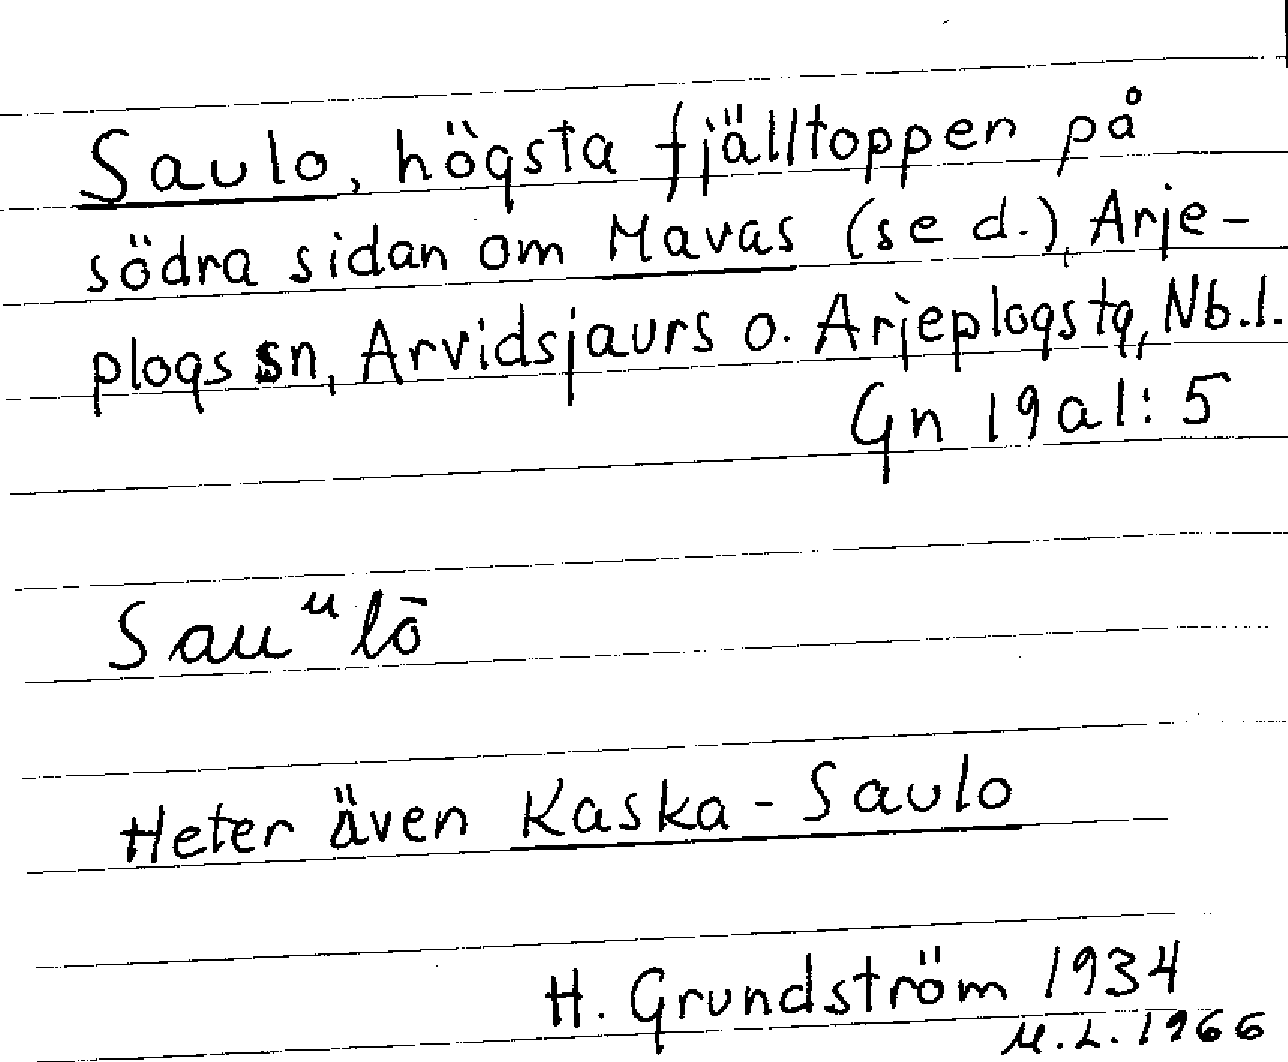 Saulo, högsta fjälltoppen på
södra sidan om Mavas (se d.), Arje-
plogs sn, Arvidsjaurs o. Arjeplogs tg, Nb.l.
Gn 19a1:5
Sauᵘlō
Heter även Kaska-Saulo
H. Grundström 1934
M.L. 1966